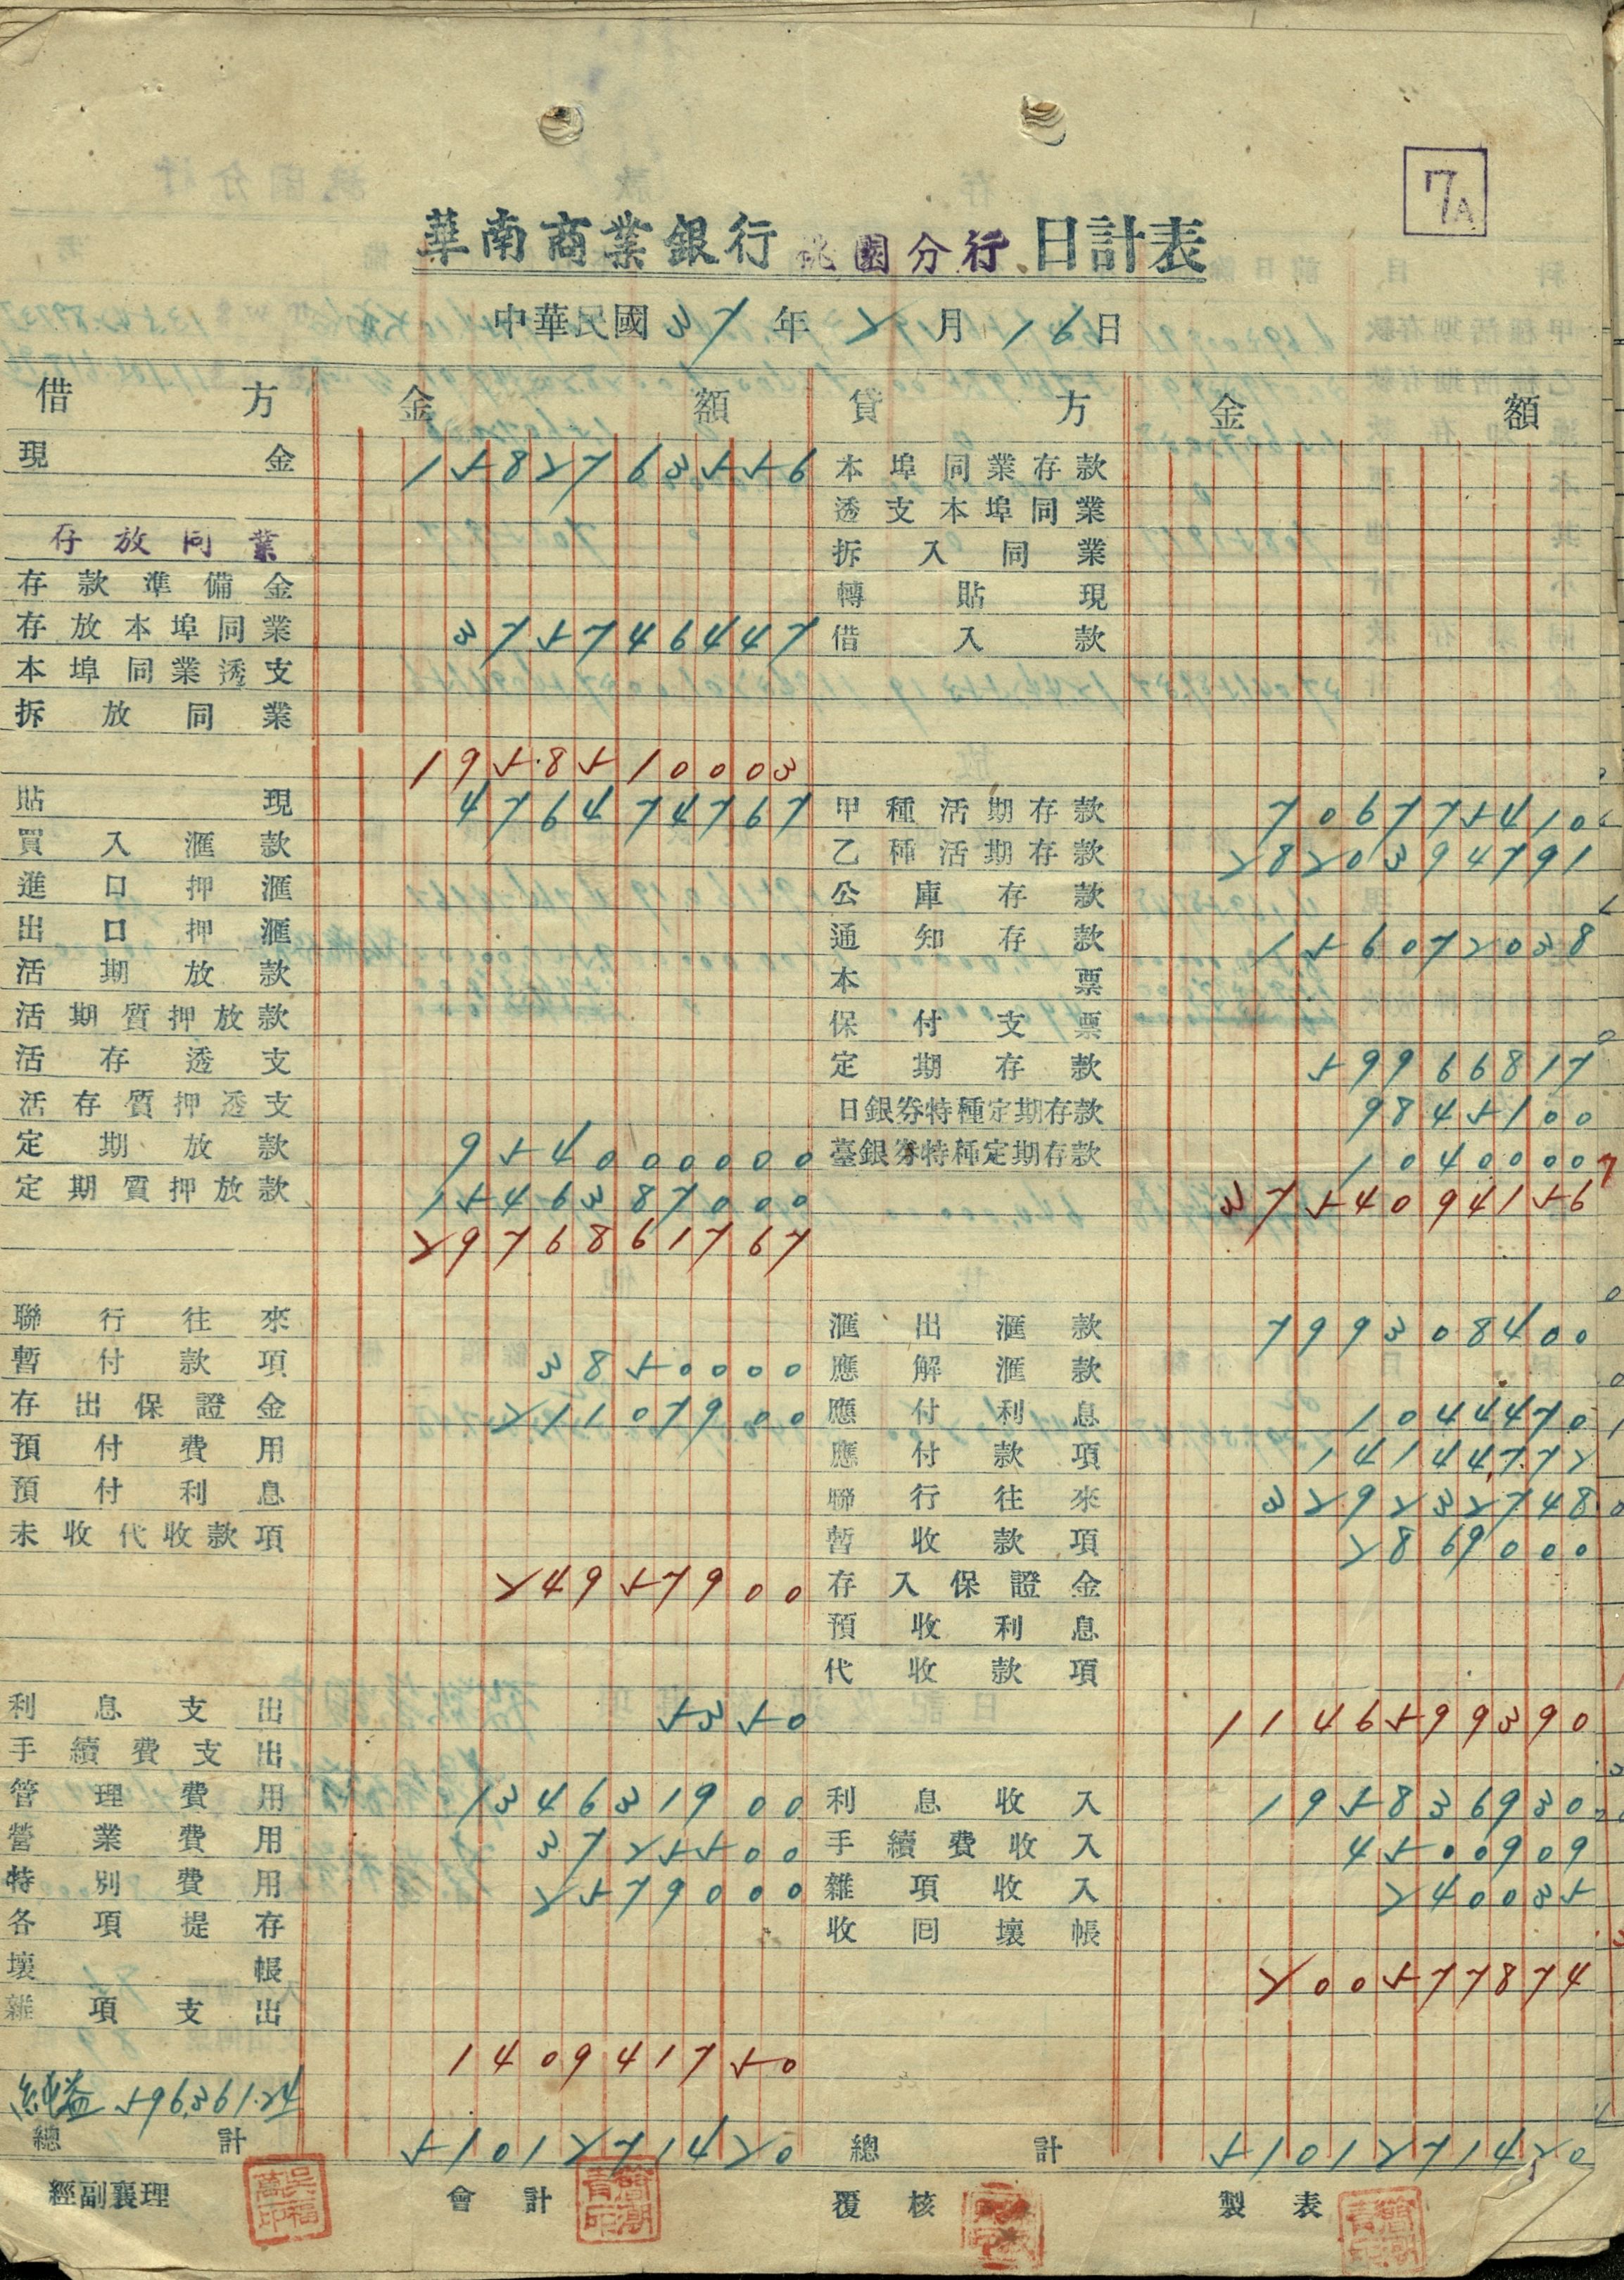 7A
華南商業銀行 桃園分行 日計表
中華民國 37 年 2 月 16 日
借方 金額 貸方 金額
現金 1582763556 本埠同業存款
透支本埠同業
存放同業 拆入同業
存款準備金 轉貼現
存放本埠同業 375746447 借入款
本埠同業透支
拆放同業
1958510003
貼現 476474767 甲種活期存款 706775410
買入滙款 乙種活期存款 2820394791
進口押滙 公庫存款
出口押滙 通知存款 156072038
活期放款 本票
活期質押放款 保付支票
活存透支 定期存款 59966817
活存質押透支 日銀券特種定期存款 9845100
定期放款 954000000 臺銀券特種定期存款 1040000
定期質押放款 1546387000 3754094156
2976861767
聯行往來 滙出滙款 799308400
暫付款項 3850000 應解滙款
存出保證金 21107900 應付利息 1044470
預付費用 應付款項 14144772
預付利息 聯行往來 329232748
未收代收款項 暫收款項 2869000
24957900 存入保證金
預收利息
代收款項
利息支出 5350 1146599390
手續費支出
管理費用 134631900 利息收入 195836930
營業費用 3725500 手續費收入 4500909
特別費用 2579000 雜項收入 240035
各項提存 收回壞帳
壞帳 200577874
雜項支出
140941750
純益 596,361.24
總計 5101271420 總計 5101271420
經副襄理 會計 覆核 製表